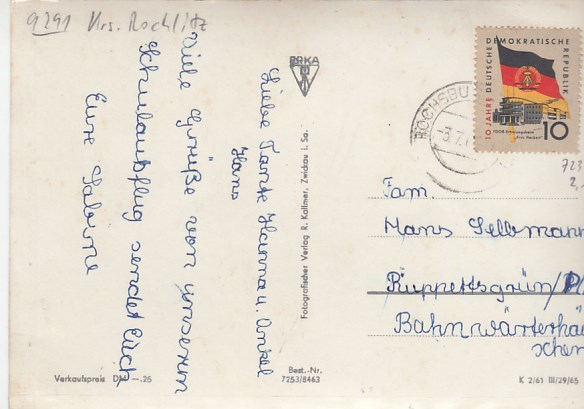 9291 Krs. Rochlitz
Liebe Tante Hanna u. Onkel
Hans
Viele Grüße von unserem
Schulausflug sendet Euch
Eure Sabine
ERKA
Fotografischer Verlag R. Kallmer, Zwickau i. Sa.
Verkaufspreis DM —.25
Best.-Nr.
7253/8463
10 JAHRE DEUTSCHE DEMOKRATISCHE REPUBLIK
FDGB Erholungsheim
„Fritz Heckert"
10
723
Fam.
Hans Sellmann
Ruppertsgrün/
Bahnwärterhäu
schen
K 2/61 III/29/65